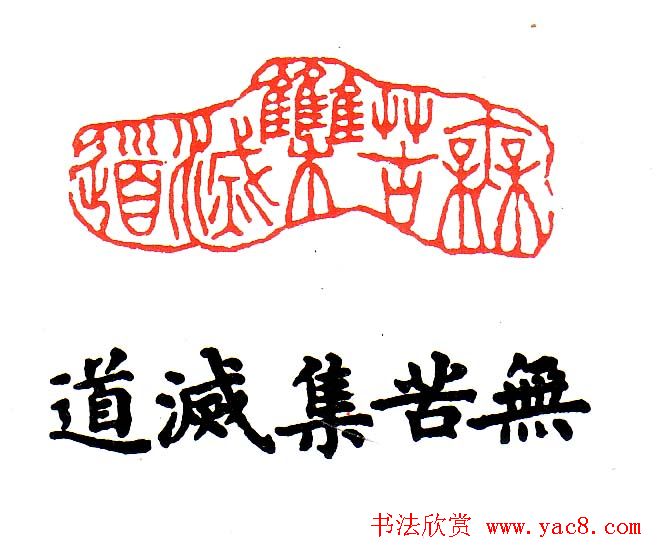 無苦集滅道
無苦集滅道
书法欣赏 www.yac8.com